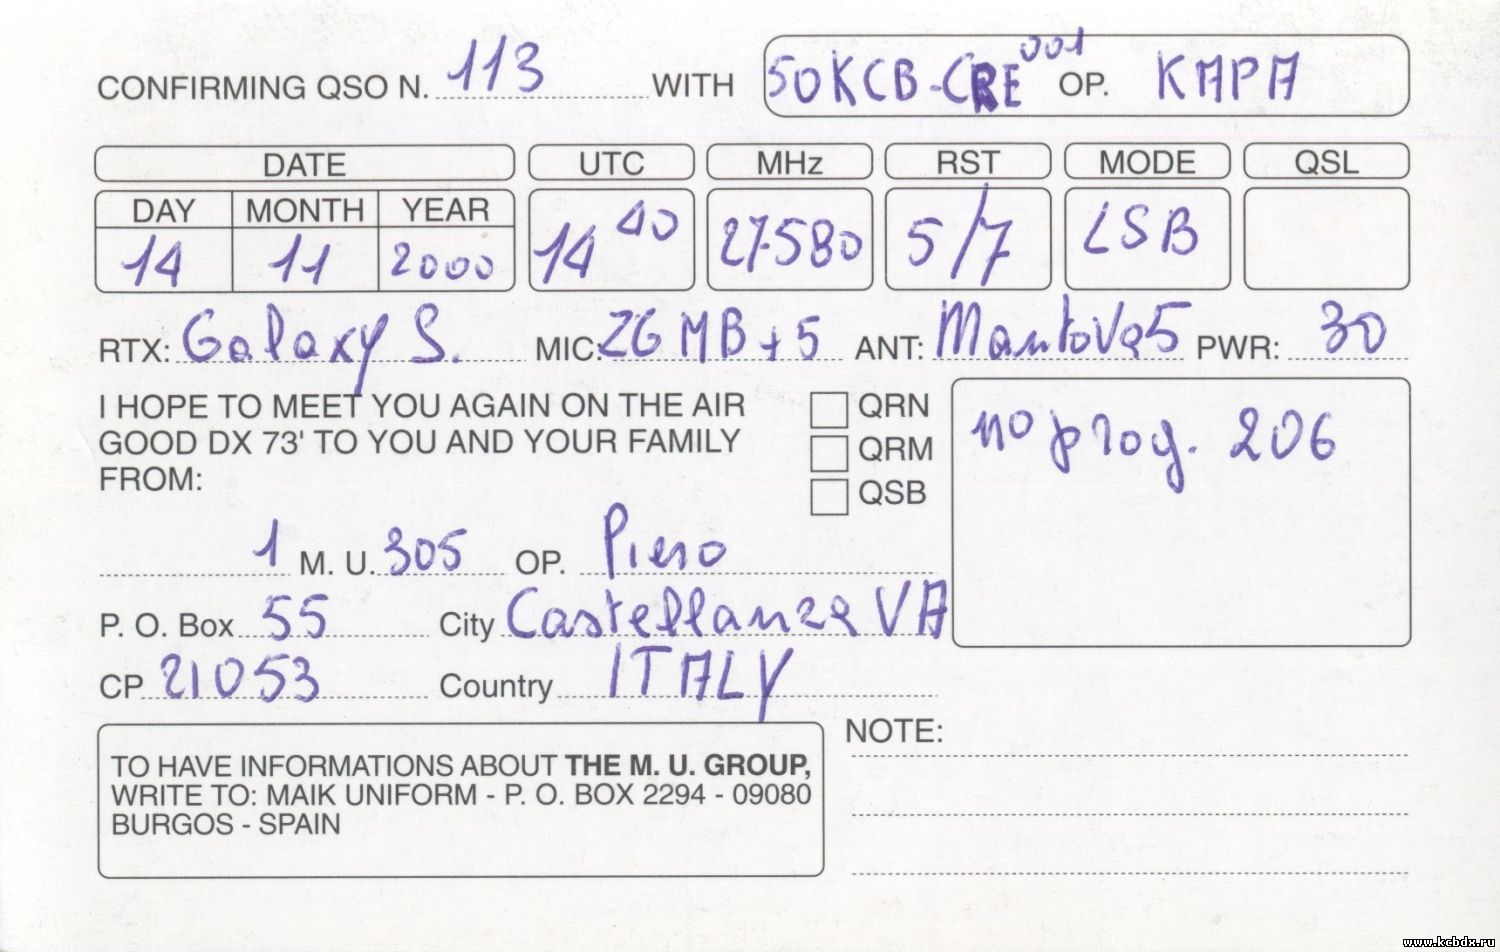 CONFIRMING QSO N. 113 WITH 50KCB-CRE 001 OP. KAPA
DATE UTC MHz RST MODE QSL
DAY MONTH YEAR
14 11 2000 14 40 27.580 5/7 LSB
RTX: Galaxy S. MIC: ZG MB+5 ANT: Mantova5 PWR: 30
I HOPE TO MEET YOU AGAIN ON THE AIR
GOOD DX 73' TO YOU AND YOUR FAMILY
FROM:
QRN
QRM
QSB
no prog. 206
1 M. U. 305 OP. Piero
P. O. Box 55 City Castellanza VA
CP 21053 Country ITALY
TO HAVE INFORMATIONS ABOUT THE M. U. GROUP,
WRITE TO: MAIK UNIFORM - P. O. BOX 2294 - 09080
BURGOS - SPAIN
NOTE:
www.kcbdx.ru